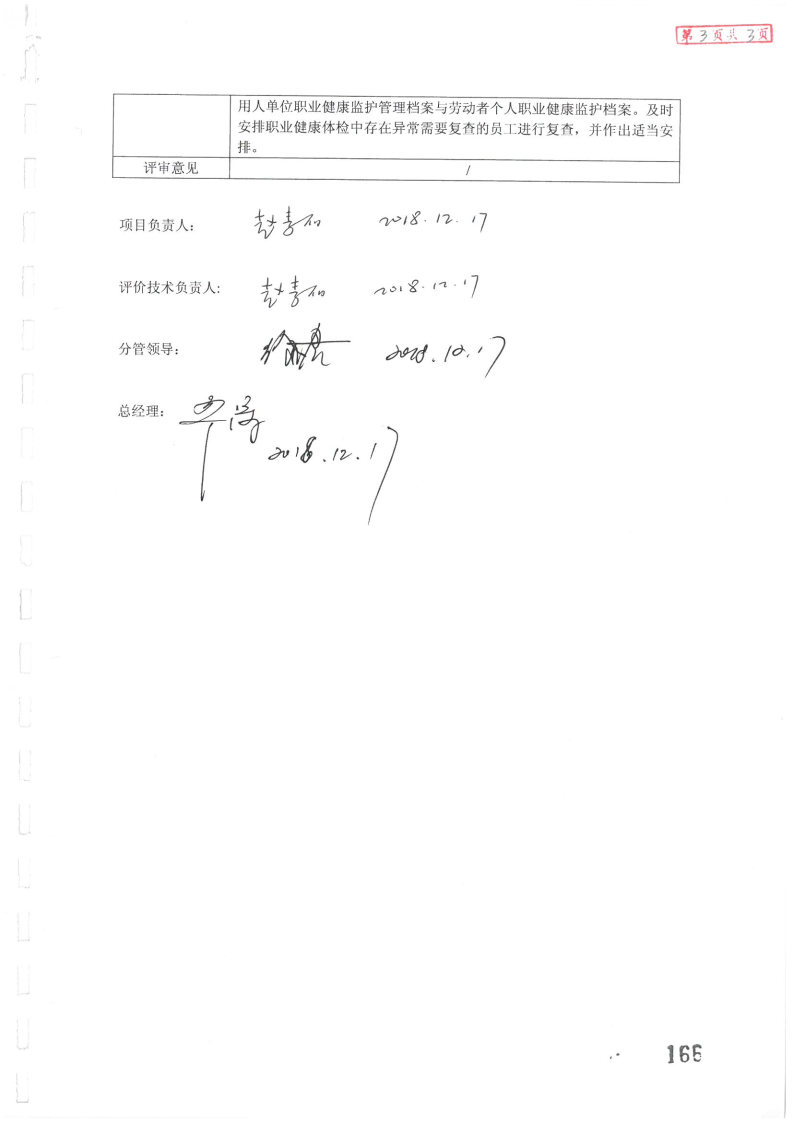 第3页共3页
用人单位职业健康监护管理档案与劳动者个人职业健康监护档案。及时
安排职业健康体检中存在异常需要复查的员工进行复查，并作出适当安
排。
评审意见 /
项目负责人： 2018.12.17
评价技术负责人： 2018.12.17
分管领导： 2018.12.17
总经理：
2018.12.17
166